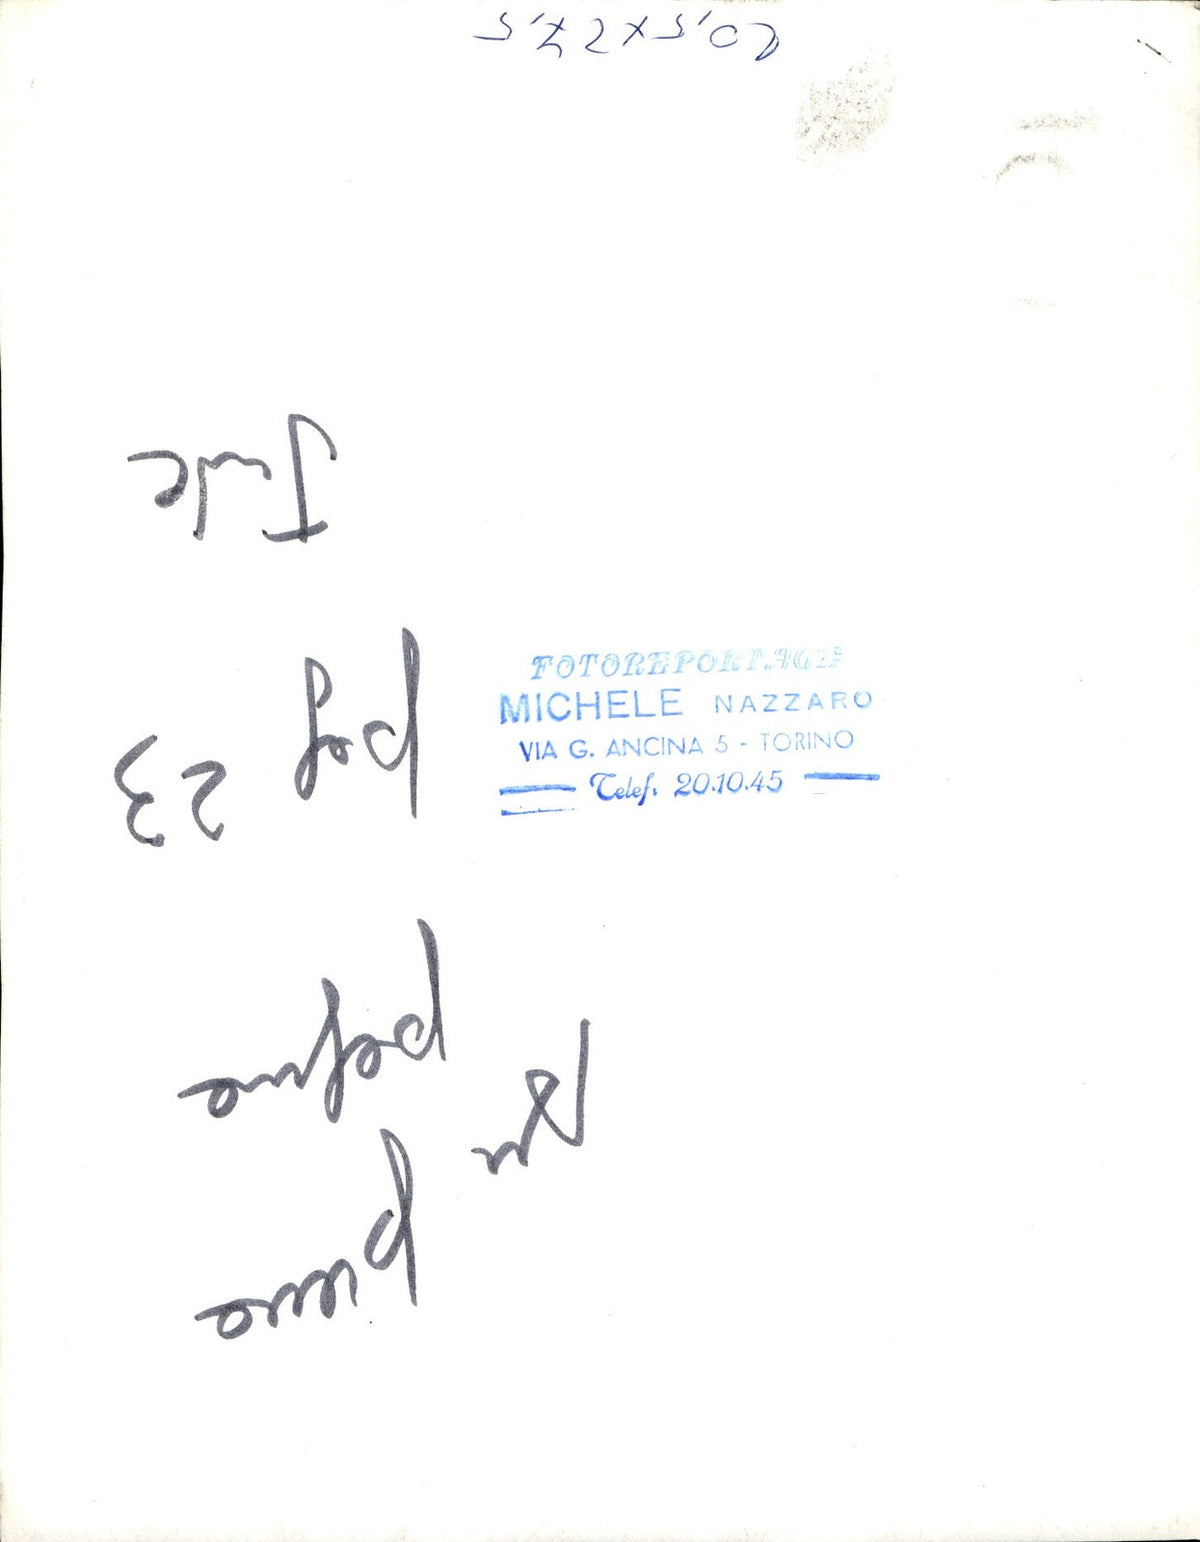 20,5x27,5
FOTOREPORTAGE
MICHELE NAZZARO
VIA G. ANCINA 5 - TORINO
Telef. 20.10.45
prima
pagina
pag 23